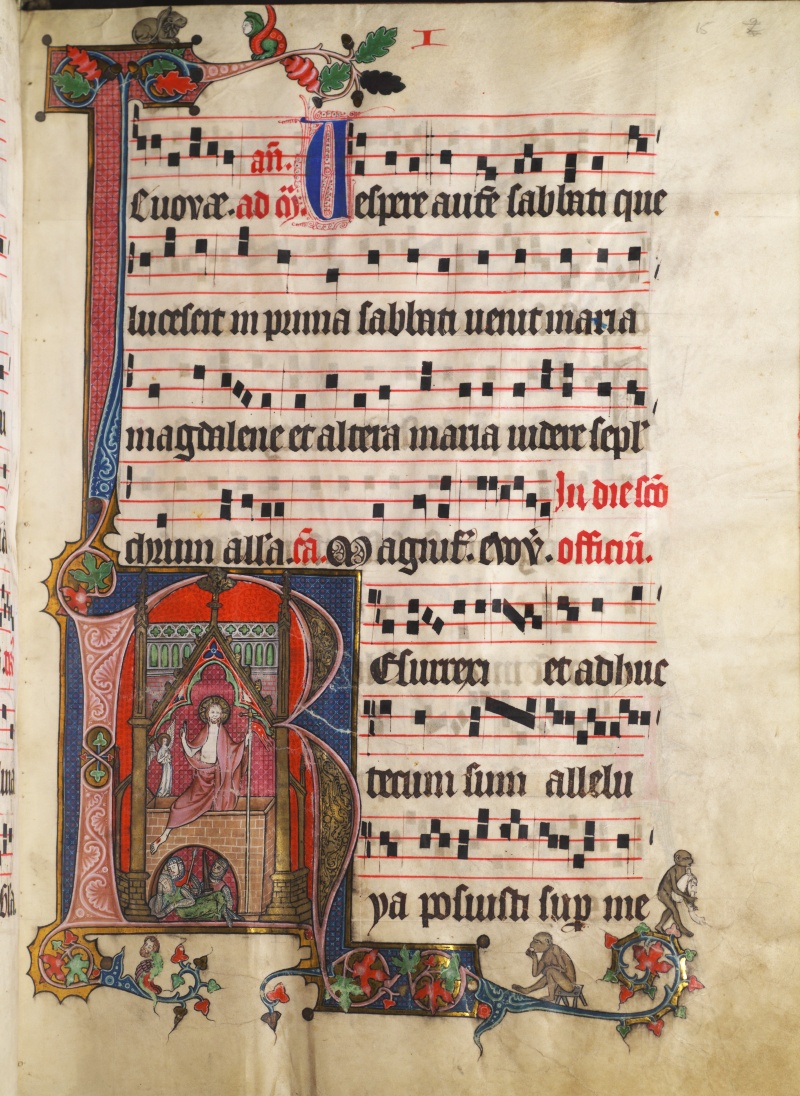 I
15
Euovæ. ad m̄. an̄. Vespere aute᷑ sabbati que
lucescit in prima sabbati uenit maria
magdalene et altera maria uidere sepl'
In die sc̄o
chrum all'a. c̄a. Magnif̄. ewv̄. officiū.
Esurrexi et adhuc
tecum sum allelu
ya posuisti sup̱ me